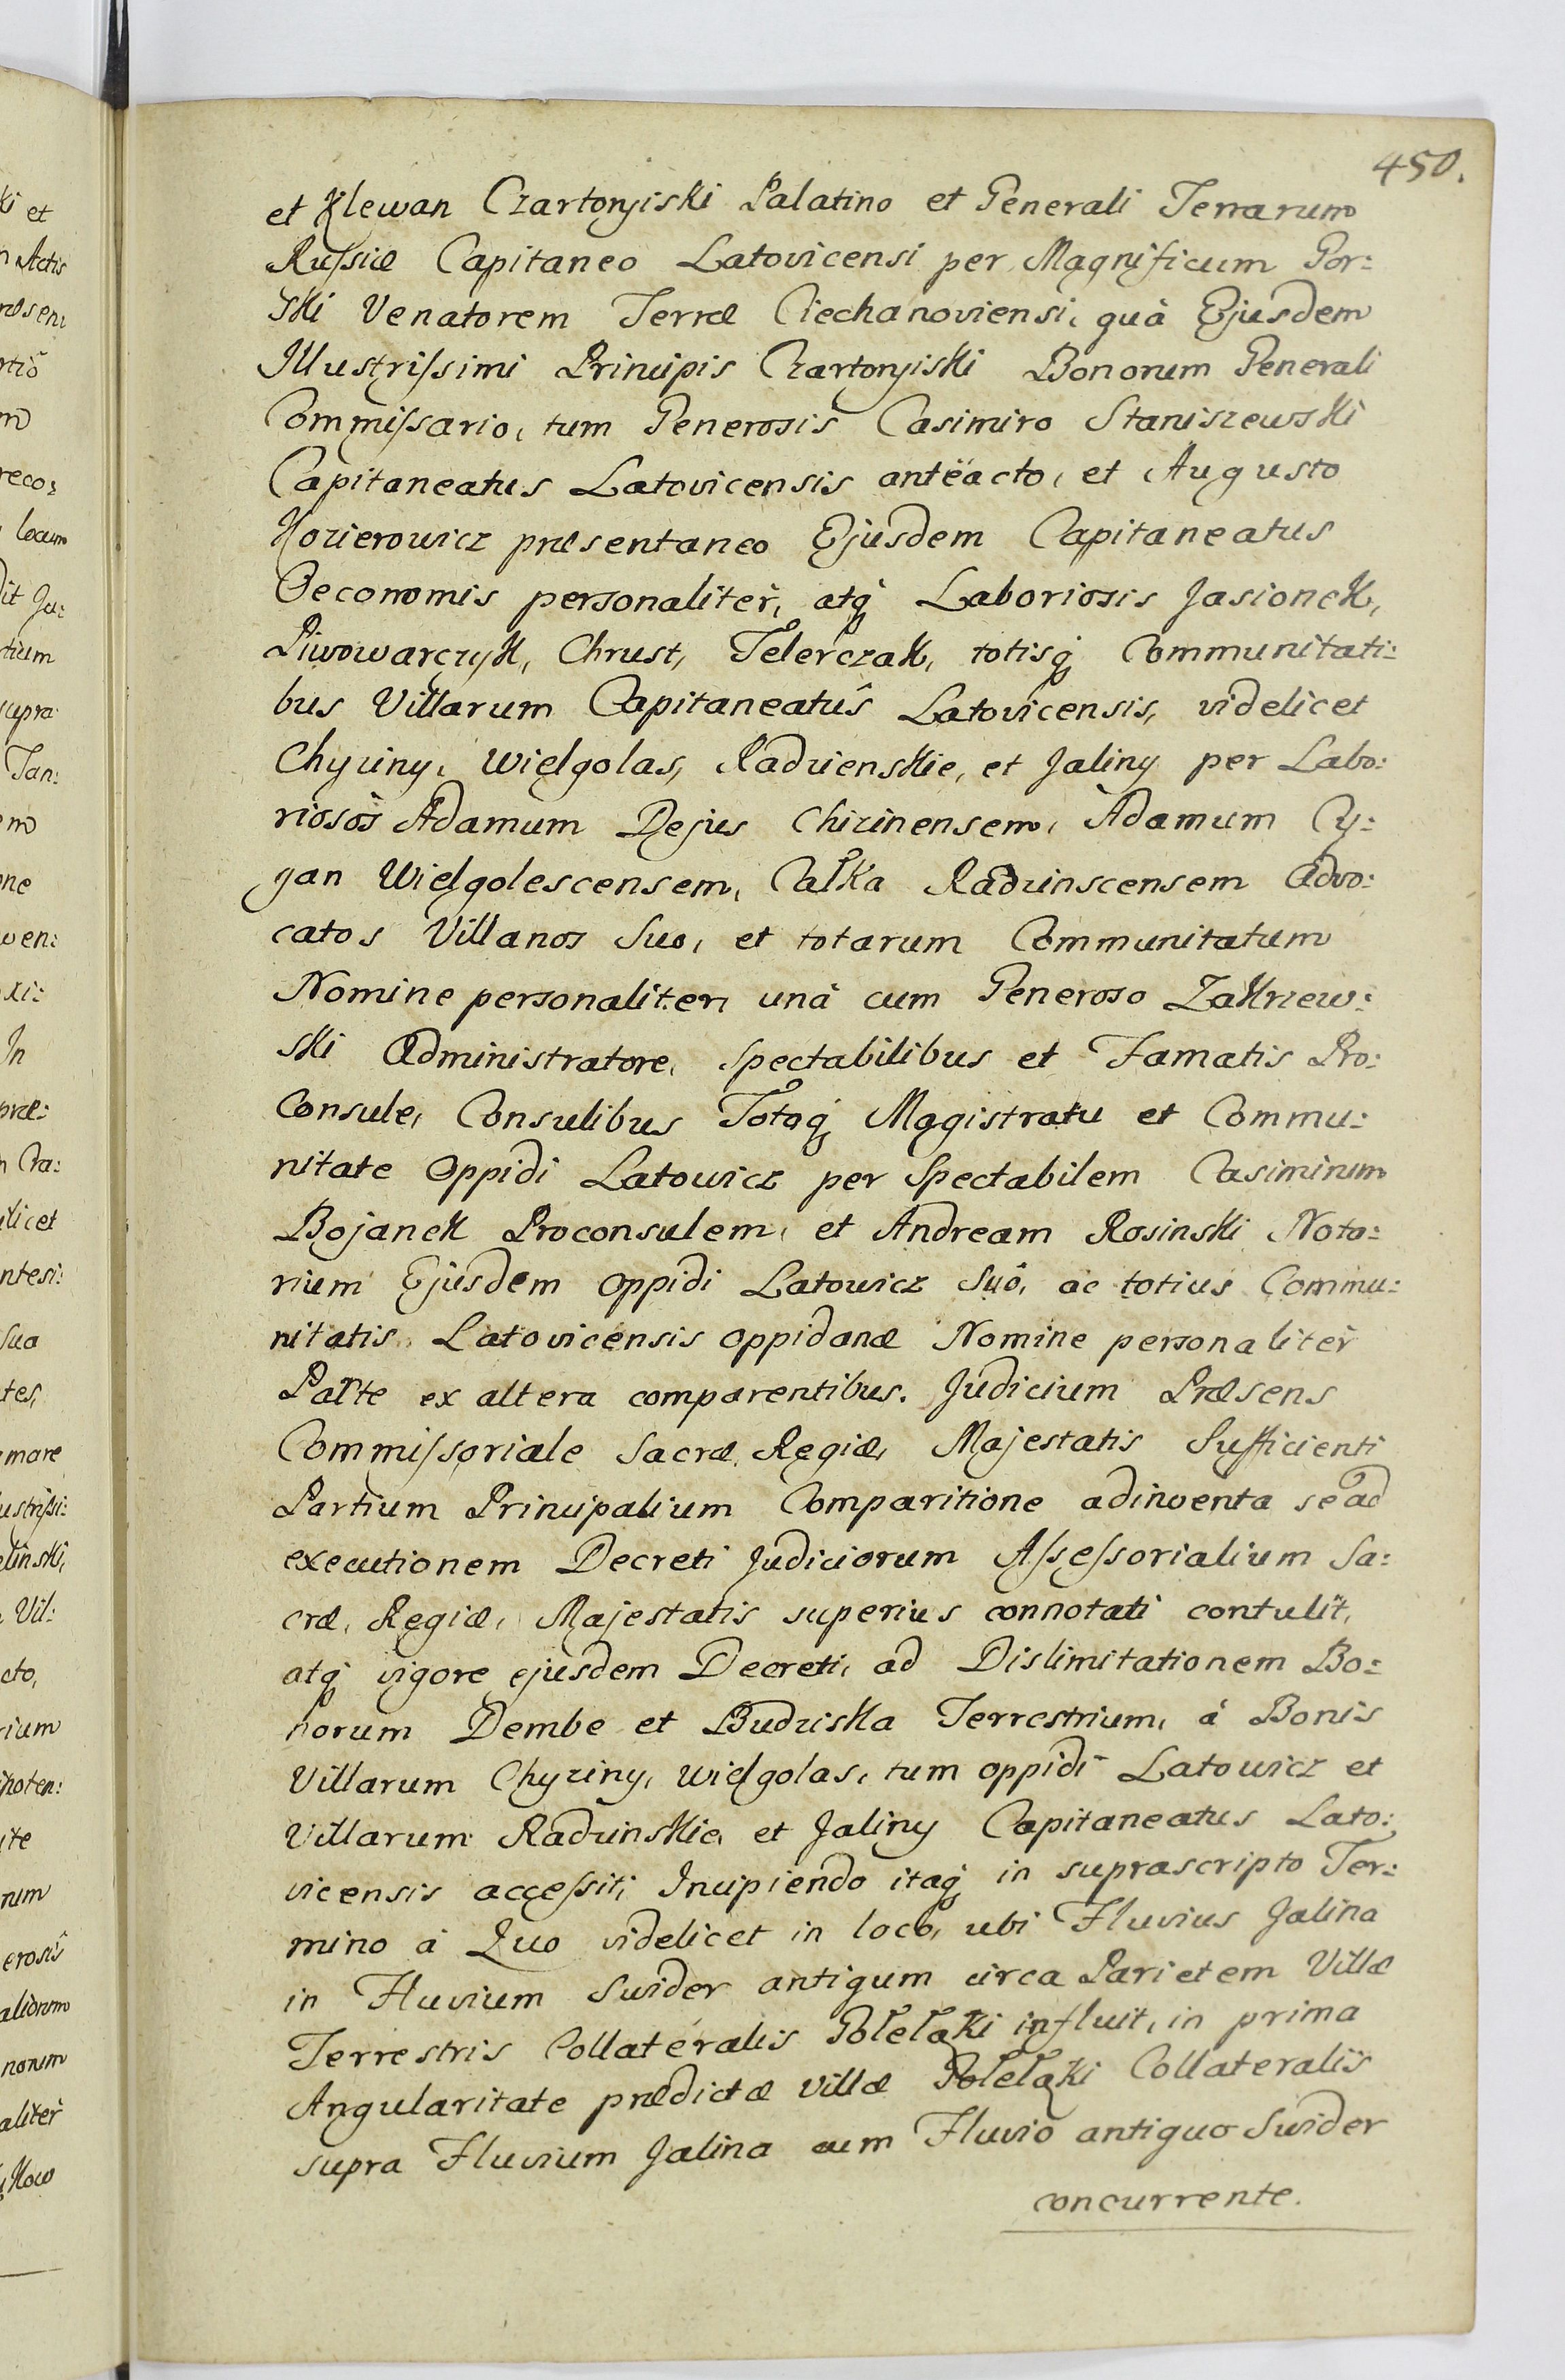 450.
et Klewan Czartoryiski Palatino et Generali Terrarum
Russiæ Capitaneo Latovicensi per Magnificum Gor:
ski Venatorem Terræ Ciechanoviensi, quà Ejusdem
Illustrissimi Principis Czartoryiski Bonorum Generali
Commissario, tum Generosis Casimiro Staniszewski
Capitaneatus Latovicensis anteacto, et Augusto
Kozierowicz præsentaneo Ejusdem Capitaneatus
Oeconomis personalitèr, atq́ Laboriosis Jasionek,
Piwowarczyk, Chrust, Telerczak, totisq́ Communitati:
bus Villarum Capitaneatûs Latovicensis, videlicet
Chyziny, Wielgolas, Radzienskie, et Jaliny per Labo:
riosos Adamum Dejus Chizinensem, Adamum Cy:
gan Wielgolescensem, Całka Radzinscensem Advo:
catos Villanos Suo, et totarum Communitatum
Nomine personaliter, unà cum Generoso Zakrzew:
ski Administratore, Spectabilibus et Famatis Pro:
Consule, Consulibus Totoq́ Magistratu et Commu:
nitate Oppidi Latowicz per Spectabilem Casimirum
Bojanek Proconsulem, et Andream Rosinski Nota:
rium Ejusdem Oppidi Latowicz Suô, ac totius Commu:
nitatis Latovicensis Oppidanæ Nomine personalitèr
Parte ex altera comparentibus. Judicium Præsens
Commissoriale Sacræ Regiæ, Majestatis Sufficienti
Partium Principalium Comparitione adinventa se ad
executionem Decreti Judiciorum Assessorialium Sa:
cræ, Regiæ, Majestatis superius connotati contulit,
atq́ vigore ejusdem Decreti, ad Dislimitationem Bo:
norum Dembe et Budziska Terrestrium, à Bonis
Villarum Chyziny, Wielgolas, tum oppidi Latowicz et
Villarum Radzinskie, et Jaliny Capitaneatus Lato:
vicensis accessit; Incipiendo itaq́ in suprascripto Ter:
mino à Quo videlicet in loco, ubi Fluvius Jalina
in Fluvium Swider antiqum circa Parietem Villæ
Terrestris Collateralis Połełąki influit, in prima
Angularitate prædictæ Villæ Połełąki Collateralis
supra Fluvium Jalina cum Fluvio antiquo Swider
concurrente.